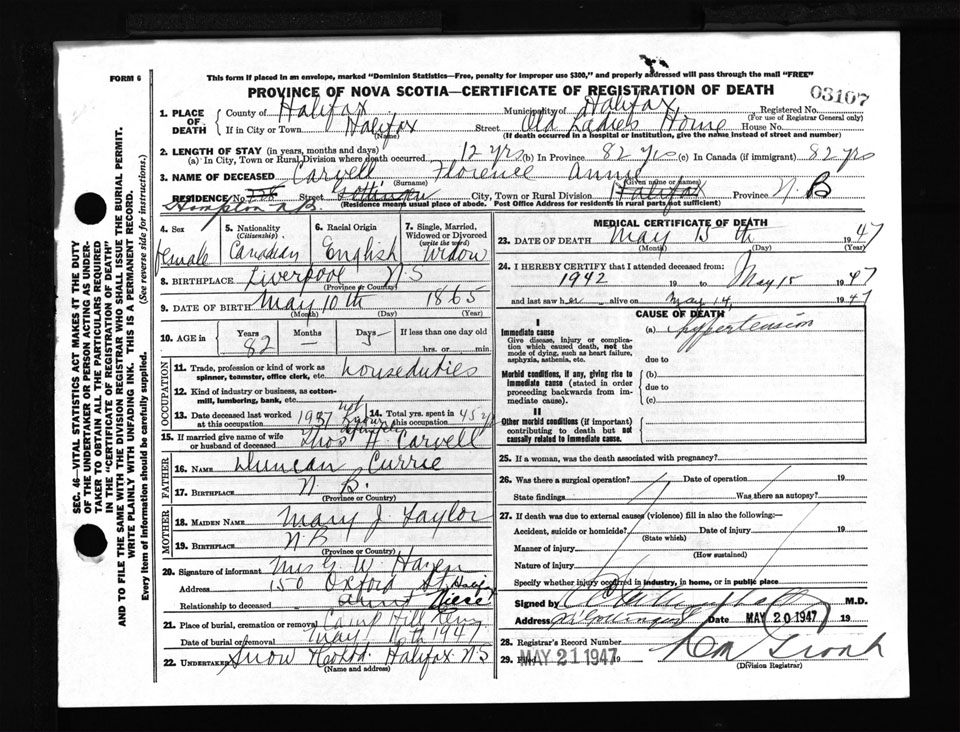 FORM 6
This form if placed in an envelope, marked "Dominion Statistics—Free, penalty for improper use $300," and properly addressed will pass through the mail "FREE"
PROVINCE OF NOVA SCOTIA—CERTIFICATE OF REGISTRATION OF DEATH
03107
1. PLACE OF DEATH County of Halifax Municipality of Halifax Registered No.
(For use of Registrar General only)
If in City or Town Halifax Street Old Ladies Home House No.
(Name) (If death occurred in a hospital or institution, give the name instead of street and number)
2. LENGTH OF STAY (in years, months and days)
(a) In City, Town or Rural Division where death occurred 12 yrs (b) In Province 82 yrs (c) In Canada (if immigrant) 82 yrs
3. NAME OF DECEASED Carvell Florence Anny
(Surname) (Given name or names)
RESIDENCE No. Street City, Town or Rural Division Halifax Province N. B
Hampton N.B. (Residence means usual place of abode. Post Office Address for residents in rural parts not sufficient)
4. Sex
female
5. Nationality (Citizenship)
Canadian
6. Racial Origin
English
7. Single, Married, Widowed or Divorced (write the word)
Widow
8. BIRTHPLACE Liverpool N.S
(Province or Country)
9. DATE OF BIRTH May 10th 1865
(Month) (Day) (Year)
10. AGE in Years 82 Months — Days 5 If less than one day old
hrs. or min.
OCCUPATION
11. Trade, profession or kind of work as spinner, teamster, office clerk, etc. houseduties
12. Kind of industry or business, as cotton-mill, lumbering, bank, etc.
13. Date deceased last worked at this occupation 1937
14. Total yrs. spent in this occupation 45 yrs
15. If married give name of wife or husband of deceased Thos H. Carvell
FATHER
16. NAME Duncan Currie
17. BIRTHPLACE N. B.
(Province or Country)
MOTHER
18. MAIDEN NAME Mary J Taylor
19. BIRTHPLACE N.B
(Province or Country)
20. Signature of informant Mrs G. W. Haven
Address 150 Oxford St
Relationship to deceased aunt Niece
21. Place of burial, cremation or removal Camp Hill Cemy
Date of burial or removal May 16th 1947
22. UNDERTAKER Snow & Co Ltd. Halifax N.S
(Name and address)
MEDICAL CERTIFICATE OF DEATH
23. DATE OF DEATH May 15th 1947
(Month) (Day) (Year)
24. I HEREBY CERTIFY that I attended deceased from:
1942 19 to May 15 1947
and last saw her alive on May 14, 1947
CAUSE OF DEATH
I
Immediate cause (a) Hypertension
Give disease, injury or complication which caused death, not the mode of dying, such as heart failure, asphyxia, asthenia, etc.
due to
Morbid conditions, if any, giving rise to immediate cause (stated in order proceeding backwards from immediate cause).
(b)
due to
(c)
II
Other morbid conditions (if important) contributing to death but not causally related to immediate cause.
25. If a woman, was the death associated with pregnancy?
26. Was there a surgical operation? Date of operation 19
State findings Was there an autopsy?
27. If death was due to external causes (violence) fill in also the following:—
Accident, suicide or homicide? Date of injury 19
(State which)
Manner of injury
(How sustained)
Nature of injury
Specify whether injury occurred in industry, in home, or in public place
Signed by M.D.
Address Date MAY 20 1947 19
28. Registrar's Record Number
29. MAY 21 1947 19
(Division Registrar)
SEC. 46—VITAL STATISTICS ACT MAKES IT THE DUTY
OF THE UNDERTAKER OR PERSON ACTING AS UNDERTAKER TO OBTAIN ALL THE PARTICULARS REQUIRED
IN THE "CERTIFICATE OF REGISTRATION OF DEATH"
AND TO FILE THE SAME WITH THE DIVISION REGISTRAR WHO SHALL ISSUE THE BURIAL PERMIT.
WRITE PLAINLY WITH UNFADING INK. THIS IS A PERMANENT RECORD.
Every item of Information should be carefully supplied. (See reverse side for instructions.)